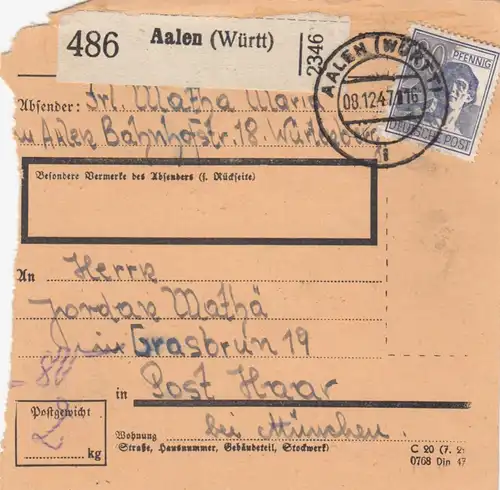 486 Aalen (Württ) 2346
AALEN (WÜRTT)
08.12.47.16
i
80 PFENNIG
DEUTSCHE POST
Absender: Frl. Matha Maria
Aalen Bahnhofstr. 18 Württbg
Besondere Vermerke des Absenders (s. Rückseite)
An Herrn
Jordan Mathä
Grasbrun 19
in Post Haar
bei München.
Postgewicht
kg
Wohnung
Straße, Hausnummer, Gebäudeteil, Stockwerk)
C 20 (7. 2
0768 Din 47